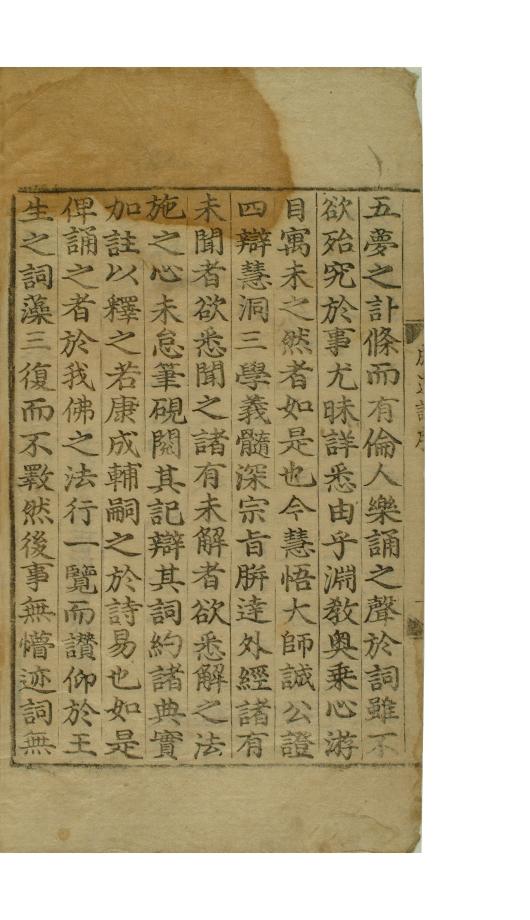 五夢之訃條而有倫人樂誦之聲於詞雖不
欲殆究於事尤昧詳悉由乎淵教奧乗心游
目寓未之然者如是也今慧悟大師誠公證
四辯慧洞三學義髓深宗旨騈達外經諸有
未聞者欲悉聞之諸有未解者欲悉解之法
施之心未怠筆硯閱其記辯其詞約諸典實
加註以釋之若康成輔嗣之於詩易也如是
俾誦之者於我佛之法行一覽而讃仰於王
生之詞藻三復而不斁然後事無懵迹詞無